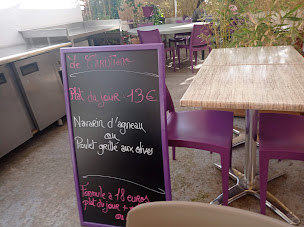 Le
Plat du jour 13€
Nararin d'agneau
ou
Poulet grillé aux olives
Formule à 18 euros
plat du jour +
ou